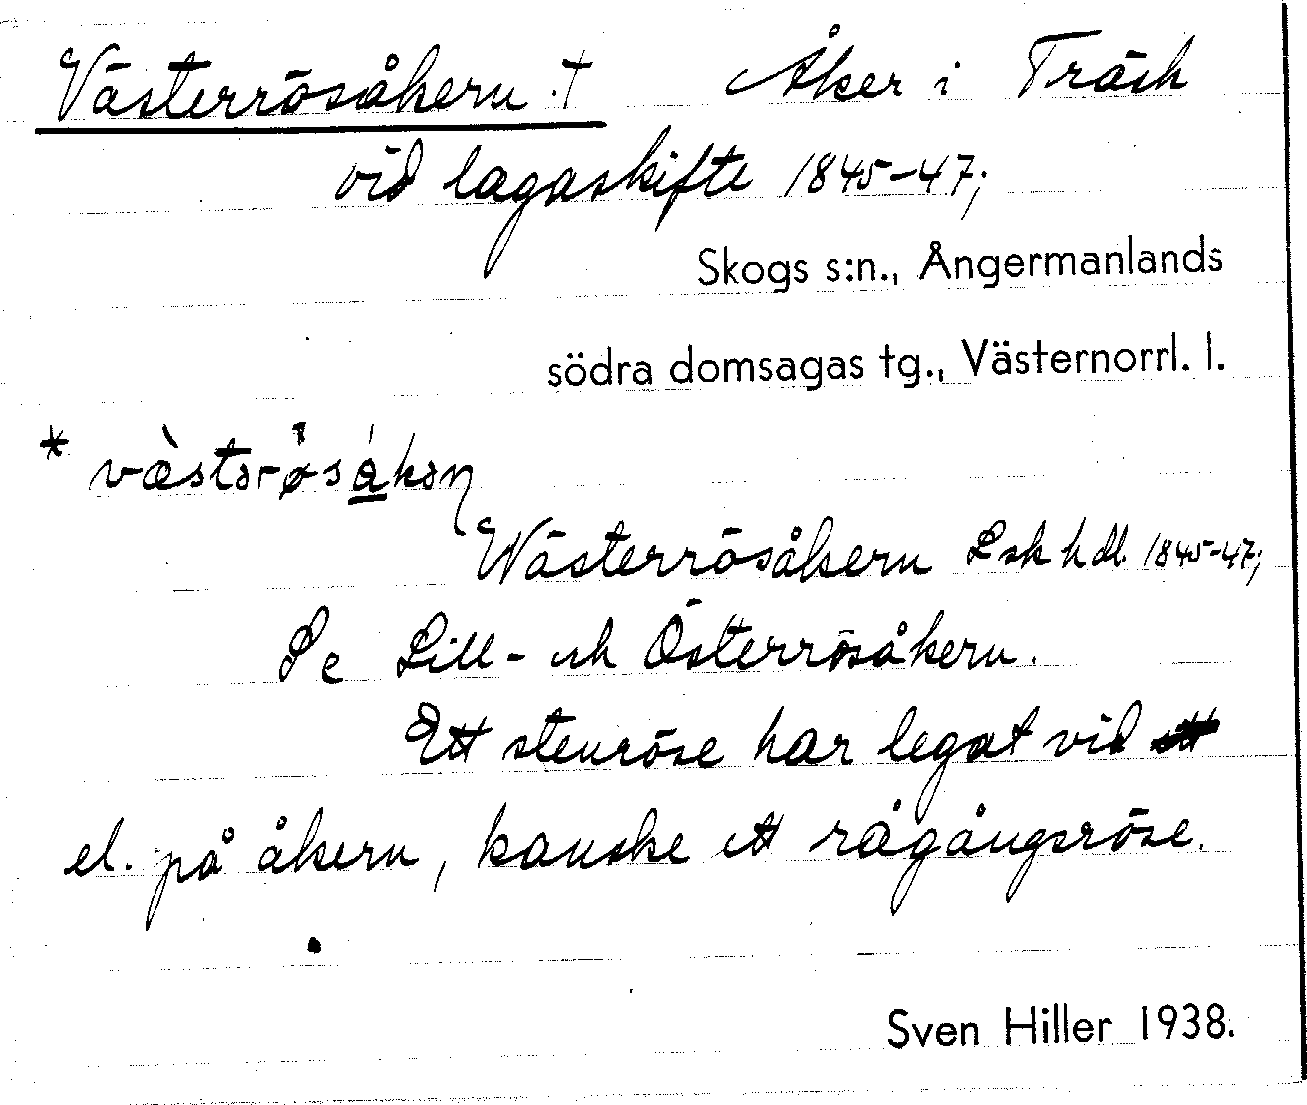 Västerrösåkern † Åker i Träsk
vid lagaskifte 1845-47;
Skogs s:n., Ångermanlands
södra domsagas tg., Västernorrl. l.
* væ̀stərø̀såkəɳ
Wästerrösåkern Lsk hdl. 1845-47;
Se Lill- och Österrösåkern.
Ett stenröse har legat vid
el. på åkern, kanske ett rågångsröse.
Sven Hiller 1938.